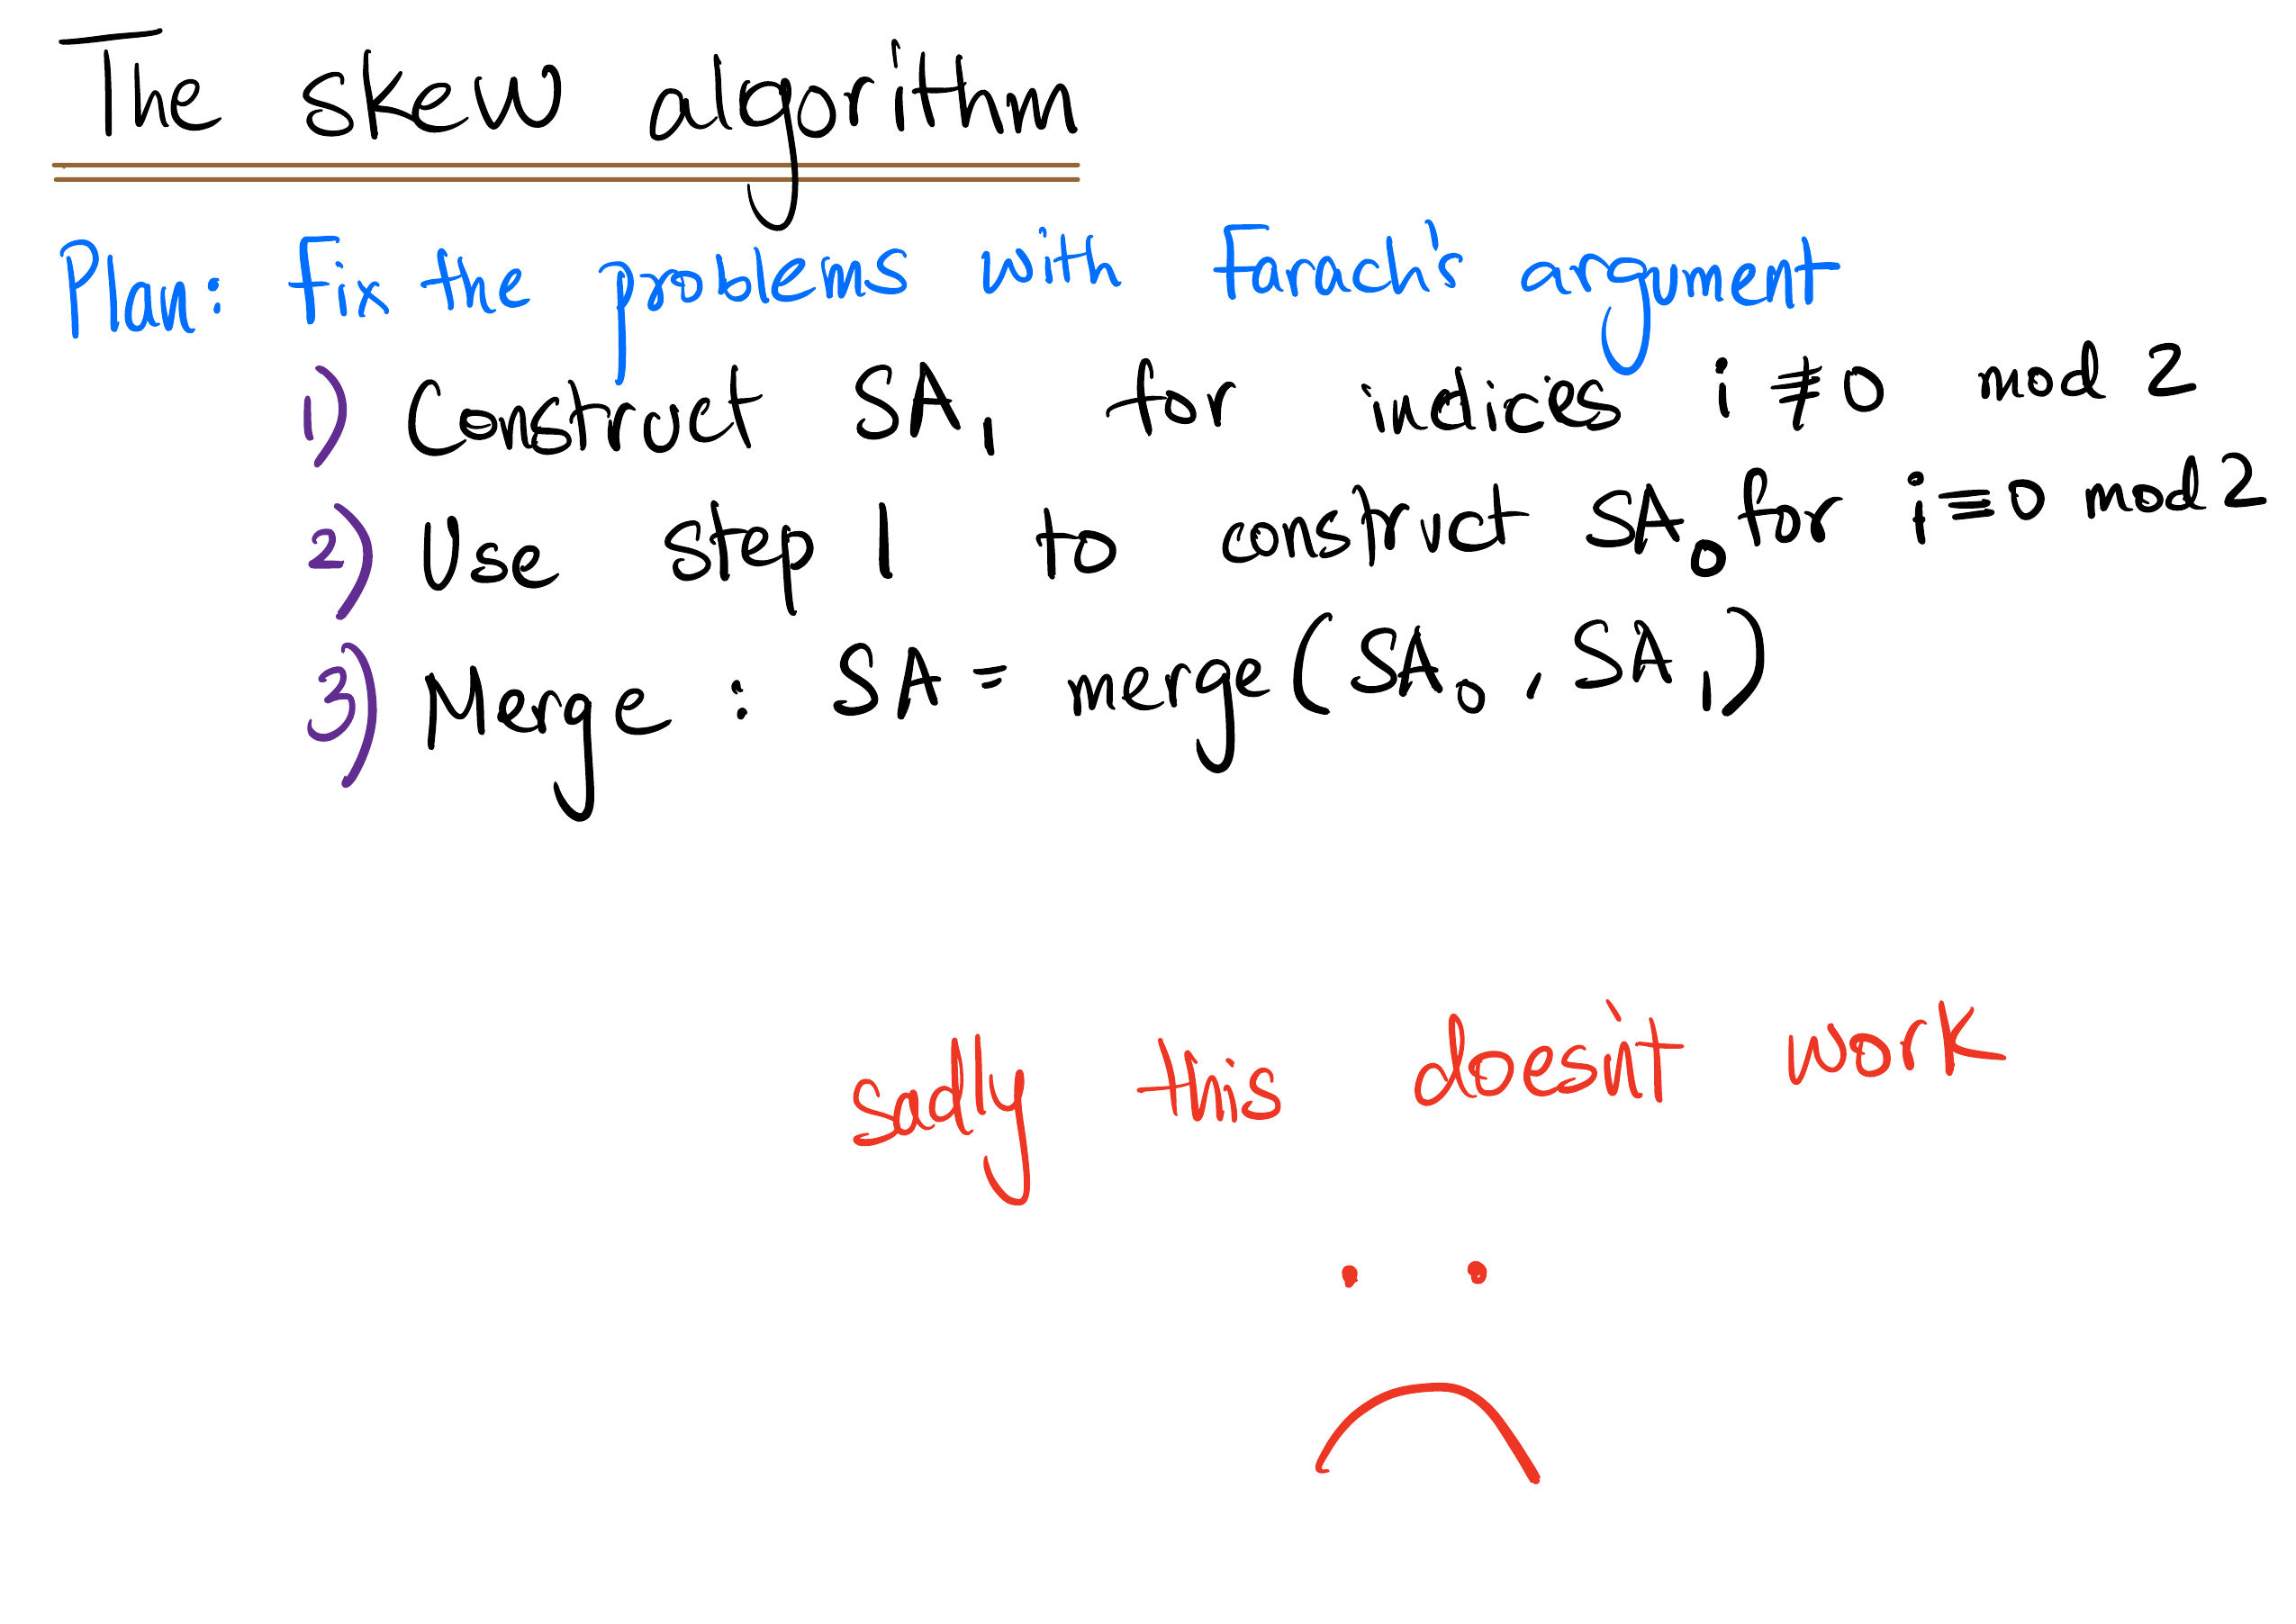 The skew algorithm
Plan: Fix the problems with Farach's argument
1) Construct SA₁ for indices i ≢ 0 mod 2
2) Use step 1 to construct SA₀ for i ≡ 0 mod 2
3) Merge : SA = merge(SA₀, SA₁)
sadly this doesn't work